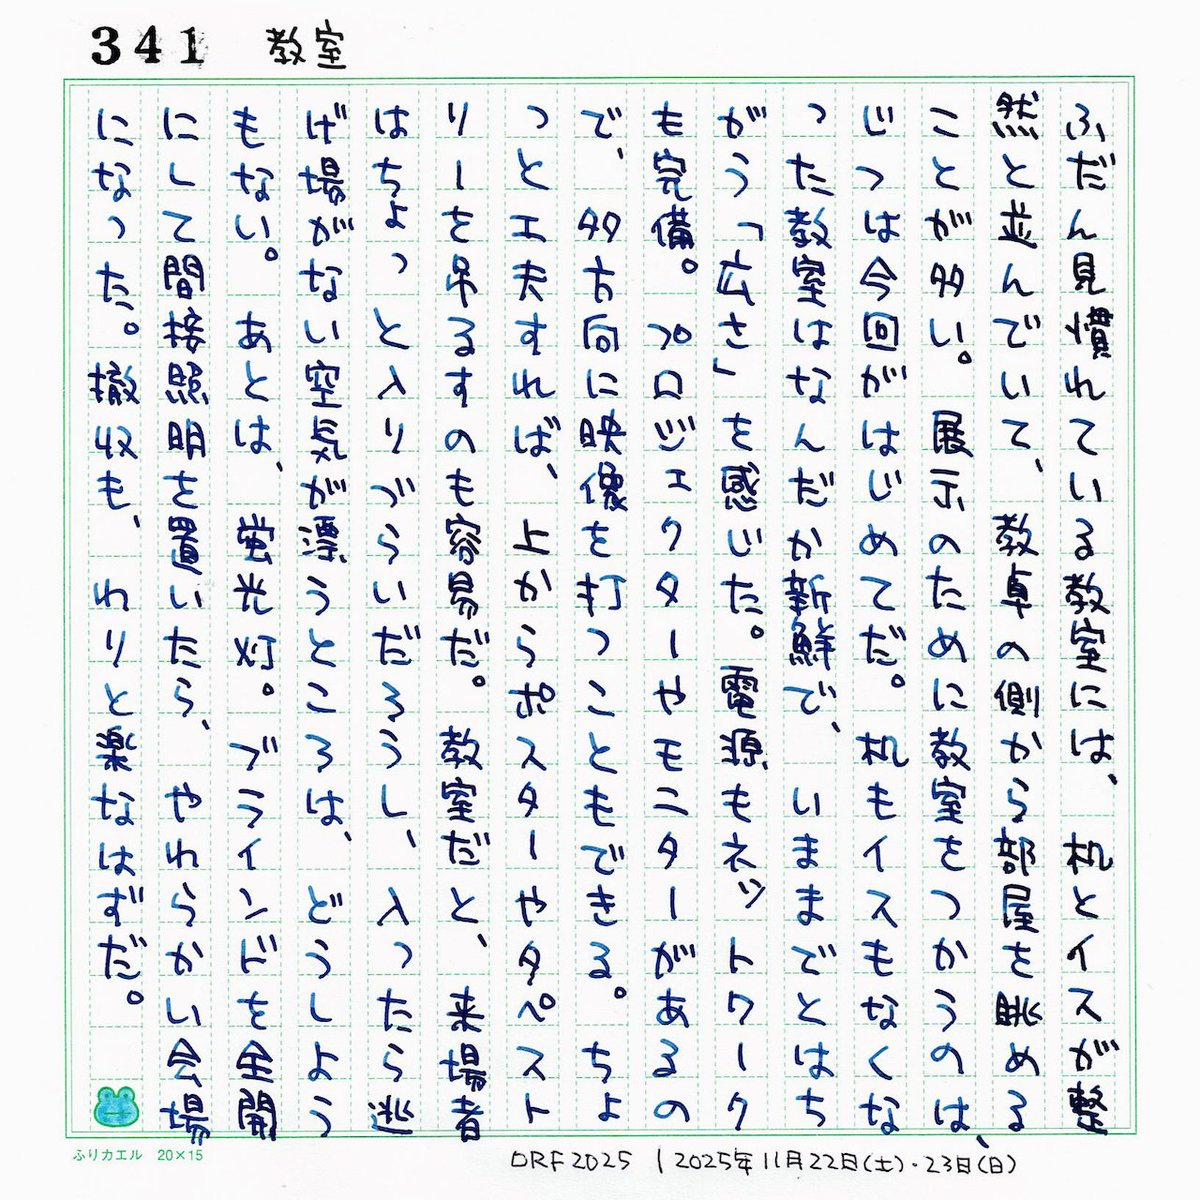 341 教室
ふだん見慣れている教室には、机とイスが整
然と並んでいて、教卓の側から部屋を眺める
ことが多い。展示のために教室をつかうのは、
じつは今回がはじめてだ。机もイスもなくな
った教室はなんだか新鮮で、いままでとはち
がう「広さ」を感じた。電源もネットワーク
も完備。プロジェクターやモニターがあるの
で、多方向に映像を打つこともできる。ちょ
っと工夫すれば、上からポスターやタペスト
リーを吊るすのも容易だ。教室だと、来場者
はちょっと入りづらいだろうし、入ったら逃
げ場がない空気が漂うところは、どうしよう
もない。あとは、蛍光灯。ブラインドを全開
にして間接照明を置いたら、やわらかい会場
になった。撤収も、わりと楽なはずだ。
ふりカエル 20×15
ORF2025 | 2025年11月22日(土)・23日(日)